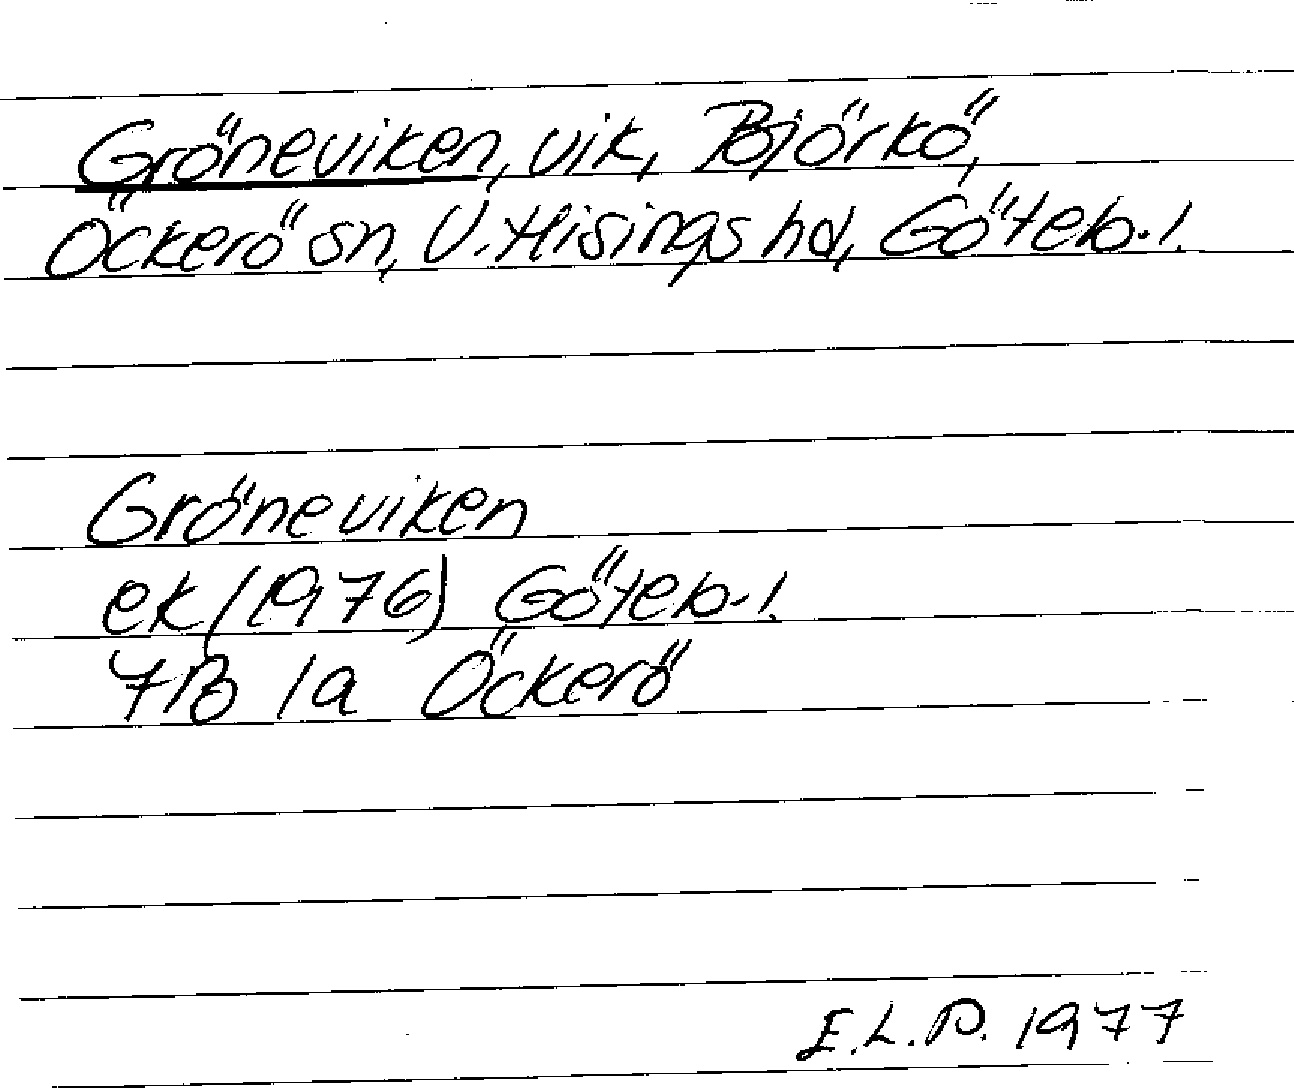 Gröneviken, vik, Björkö,
Öckerö sn, V. Hisings hd, Göteb. l.
Gröneviken
ek (1976) Göteb. l.
7B 1a Öckerö
E.L.P. 1977